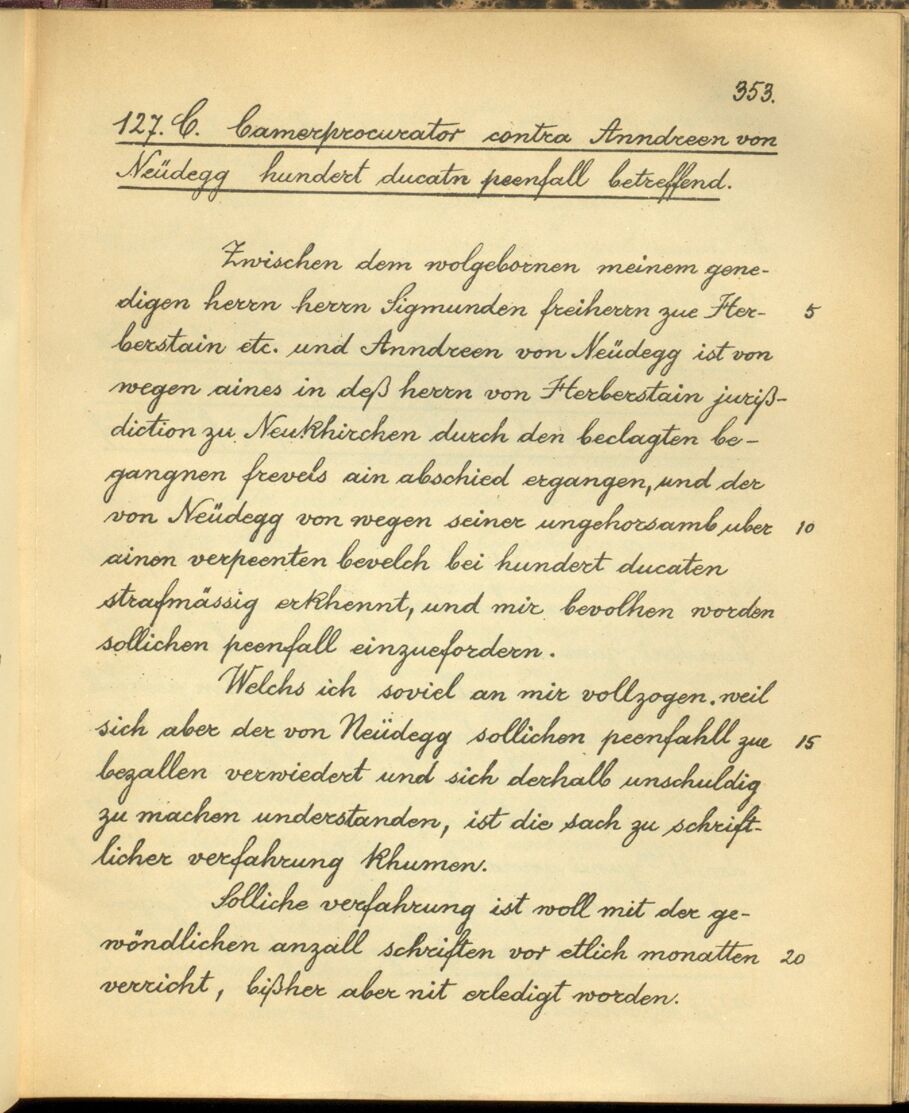 353.
127. C. Camerprocurator contra Anndreen von
Neüdegg hundert ducatn peenfall betreffend.
Zwischen dem wolgebornen meinem gene-
digen herrn herrn Sigmunden freiherrn zue Her- 5
berstain etc. und Anndreen von Neüdegg ist von
wegen aines in deß herrn von Herberstain juriß-
diction zu Neukhirchen durch den beclagten be-
gangnen frevels ain abschied ergangen, und der
von Neüdegg von wegen seiner ungehorsamb uber 10
ainen verpeenten bevelch bei hundert ducaten
strafmässig erkhennt, und mir bevolhen worden
sollichen peenfall einzuefordern.
Welchs ich soviel an mir vollzogen. weil
sich aber der von Neüdegg sollichen peenfahll zue 15
bezallen verwiedert und sich derhalb unschuldig
zu machen understanden, ist die sach zu schrift-
licher verfahrung khumen.
Solliche verfahrung ist woll mit der ge-
wöndlichen anzall schriften vor etlich monatten 20
verricht, bißher aber nit erledigt worden.